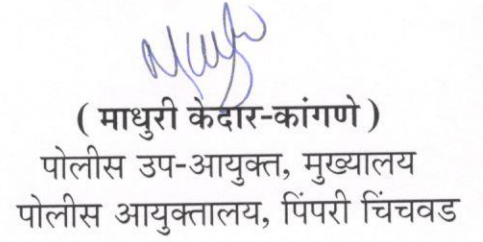 ( माधुरी केदार-कांगणे )
पोलीस उप-आयुक्त, मुख्यालय
पोलीस आयुक्तालय, पिंपरी चिंचवड